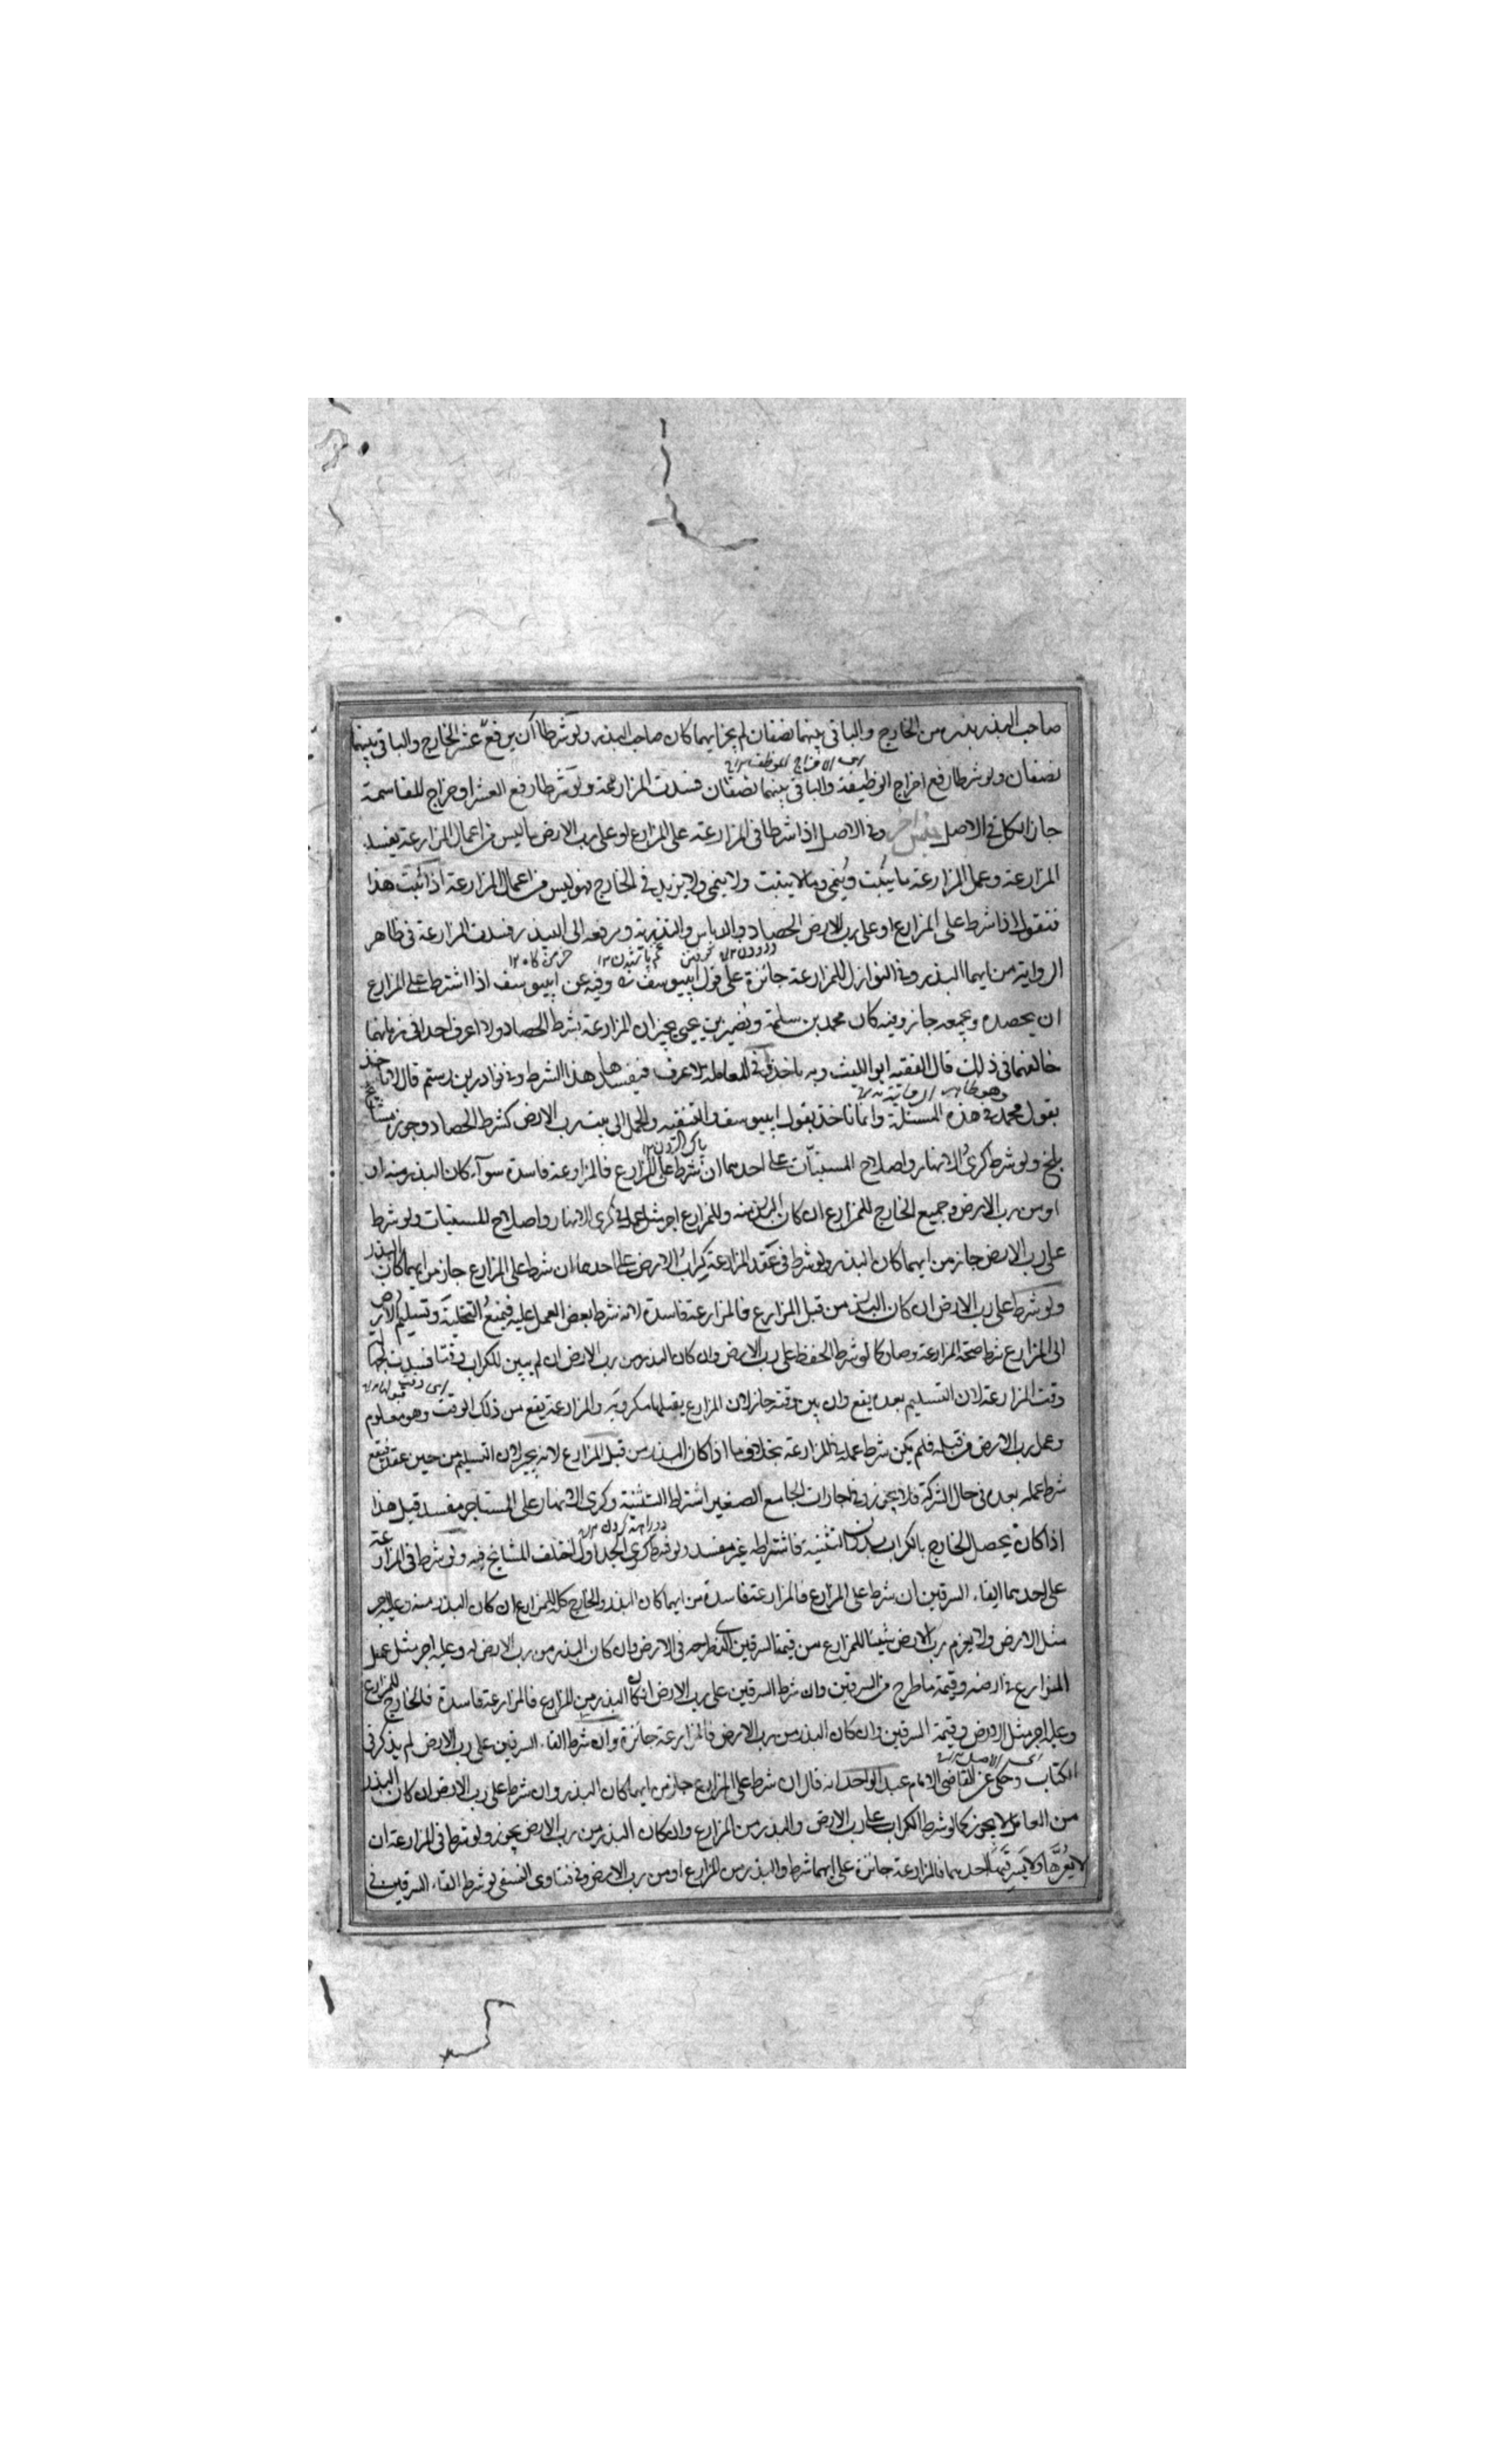 صاحب البذر بذره من الخارج والباقي بينهما نصفان لم يجز ايهما كان صاحب البذر ولو شرطا ان يرفع عشر الخارج والباقي بينهما
نصفان ولو شرطا رفع اخراج الوظيفة والباقي بينهما نصفان فسدت المزارعة ولو شرطا رفع العشر او خراج المقاسمة
جاز الكل في الاصل جنس اخر وفي الاصل اذا شرطا في المزارعة على المزارع او على رب الارض ما ليس من اعمال المزارعة يفسد
المزارعة وعمل المزارعة ما ينبت وينمي وما لا ينبت ولا ينمي ولا يزيد في الخارج فهو ليس من اعمال المزارعة اذا ثبت هذا
فنقول اذا شرط على المزارع او على رب الارض الحصاد والدياس والتذرية ورفعه الى البيدر فسدت المزارعة في ظاهر
الرواية من ايهما البذر وفي النوازل المزارعة جائزة على قول ابييوسف وفيه عن ابييوسف اذا اشترط على المزارع
ان يحصده ويجمعه جاز وفيه كان محمد بن سلمة ونصير بن يحيى يجيزان المزارعة بشرط الحصاد ولا اعرف احدا في زمانهما
خالفهما في ذلك قال الفقيه ابو الليث وبه ناخذ وفي المعاملة لا عرف فيفسدها هذا الشرط وفي نوادر بن رستم قال لا ناخذ
وهو ظاهر الرواية
بقول محمد في هذه المسئلة وانما ناخذ بقول ابييوسف والتنقية والحمل الى بيت رب الارض كشرط الحصاد وجوز مشايخ
بلخ ولو شرط كري الانهار واصلاح المسنيات على احدهما ان شرط على المزارع فالمزارعة فاسدة سوآء كان البذر منه او
او من رب الارض وجميع الخارج للمزارع ان كان البذر منه وللمزارع اجر مثل عمله في كري الانهار واصلاح المسنيات ولو شرط
على رب الارض جاز من ايهما كان البذر ولو شرط في عقد المزارعة كراب الارض على احدهما ان شرط على المزارع جاز من ايهما كان البذر
ولو شرط على رب الارض ان كان البذر من قبل المزارع فالمزارعة فاسدة لانه شرط بعض العمل عليه فيمنع التخلية وتسليم الارض
الى المزارع شرط صحة المزارعة وصار كما لو شرط الحفظ على رب الارض وان كان البذر من رب الارض ان لم يبين للكراب وقتا فسدت
وقت المزارعة لان التسليم بعده يقع وان بين وقته جاز لان المزارع يقبلها مكروبة والمزارعة يقع من ذلك الوقت وهو معلوم
وعمل رب الارض من قبله فلم يكن شرط عمله في المزارعة بخلاف ما اذا كان البذر من قبل المزارع لانه يجبر لان التسليم من حين عقد فيقع
شرط عمله بعده في حال الشركة فلا يجوز وفي اجارات الجامع الصغير اشتراط التثنية وكري الانهار على المستاجر مفسد قيل هذا
اذا كان يحصل الخارج بالكراب بدون التثنية فاشتراطه غير مفسد كري الجداول اختلف المشايخ فيه ولو شرط في المزارعة
على احدهما القاء السرقين ان شرط على المزارع فالمزارعة فاسدة من ايهما كان البذر والخارج كله للمزارع ان كان البذر منه وعليه اجر
مثل الارض ولا يغرم رب الارض شيئا للمزارع من قيمة السرقين الذي طرحه في الارض وان كان البذر من رب الارض له وعليه اجر مثل عمل
المزارع في ارضه وقيمة ما طرح من السرقين وان شرط السرقين على رب الارض ان كان البذر من المزارع فالمزارعة فاسدة فالخارج للمزارع
وعليه اجر مثل الارض وقيمة السرقين وان كان البذر من رب الارض فالمزارعة جائزة وان شرط القاء السرقين على رب الارض لم يذكر في
الكتاب وحكي عن القاضي الامام عبد الواحد انه قال ان شرط على المزارع جاز من ايهما كان البذر وان شرط على رب الارض ان كان البذر
من العامل لا يجوز كما لو شرط الكراب على رب الارض والبذر من المزارع وان كان البذر من رب الارض يجوز ولو شرطا في المزارعة ان
لا يعرها ولا يسرقنها احدهما فالمزارعة جائزة على ايهما شرط والبذر من المزارع او من رب الارض وفي فتاوى النسفي لو شرط القاء السرقين في